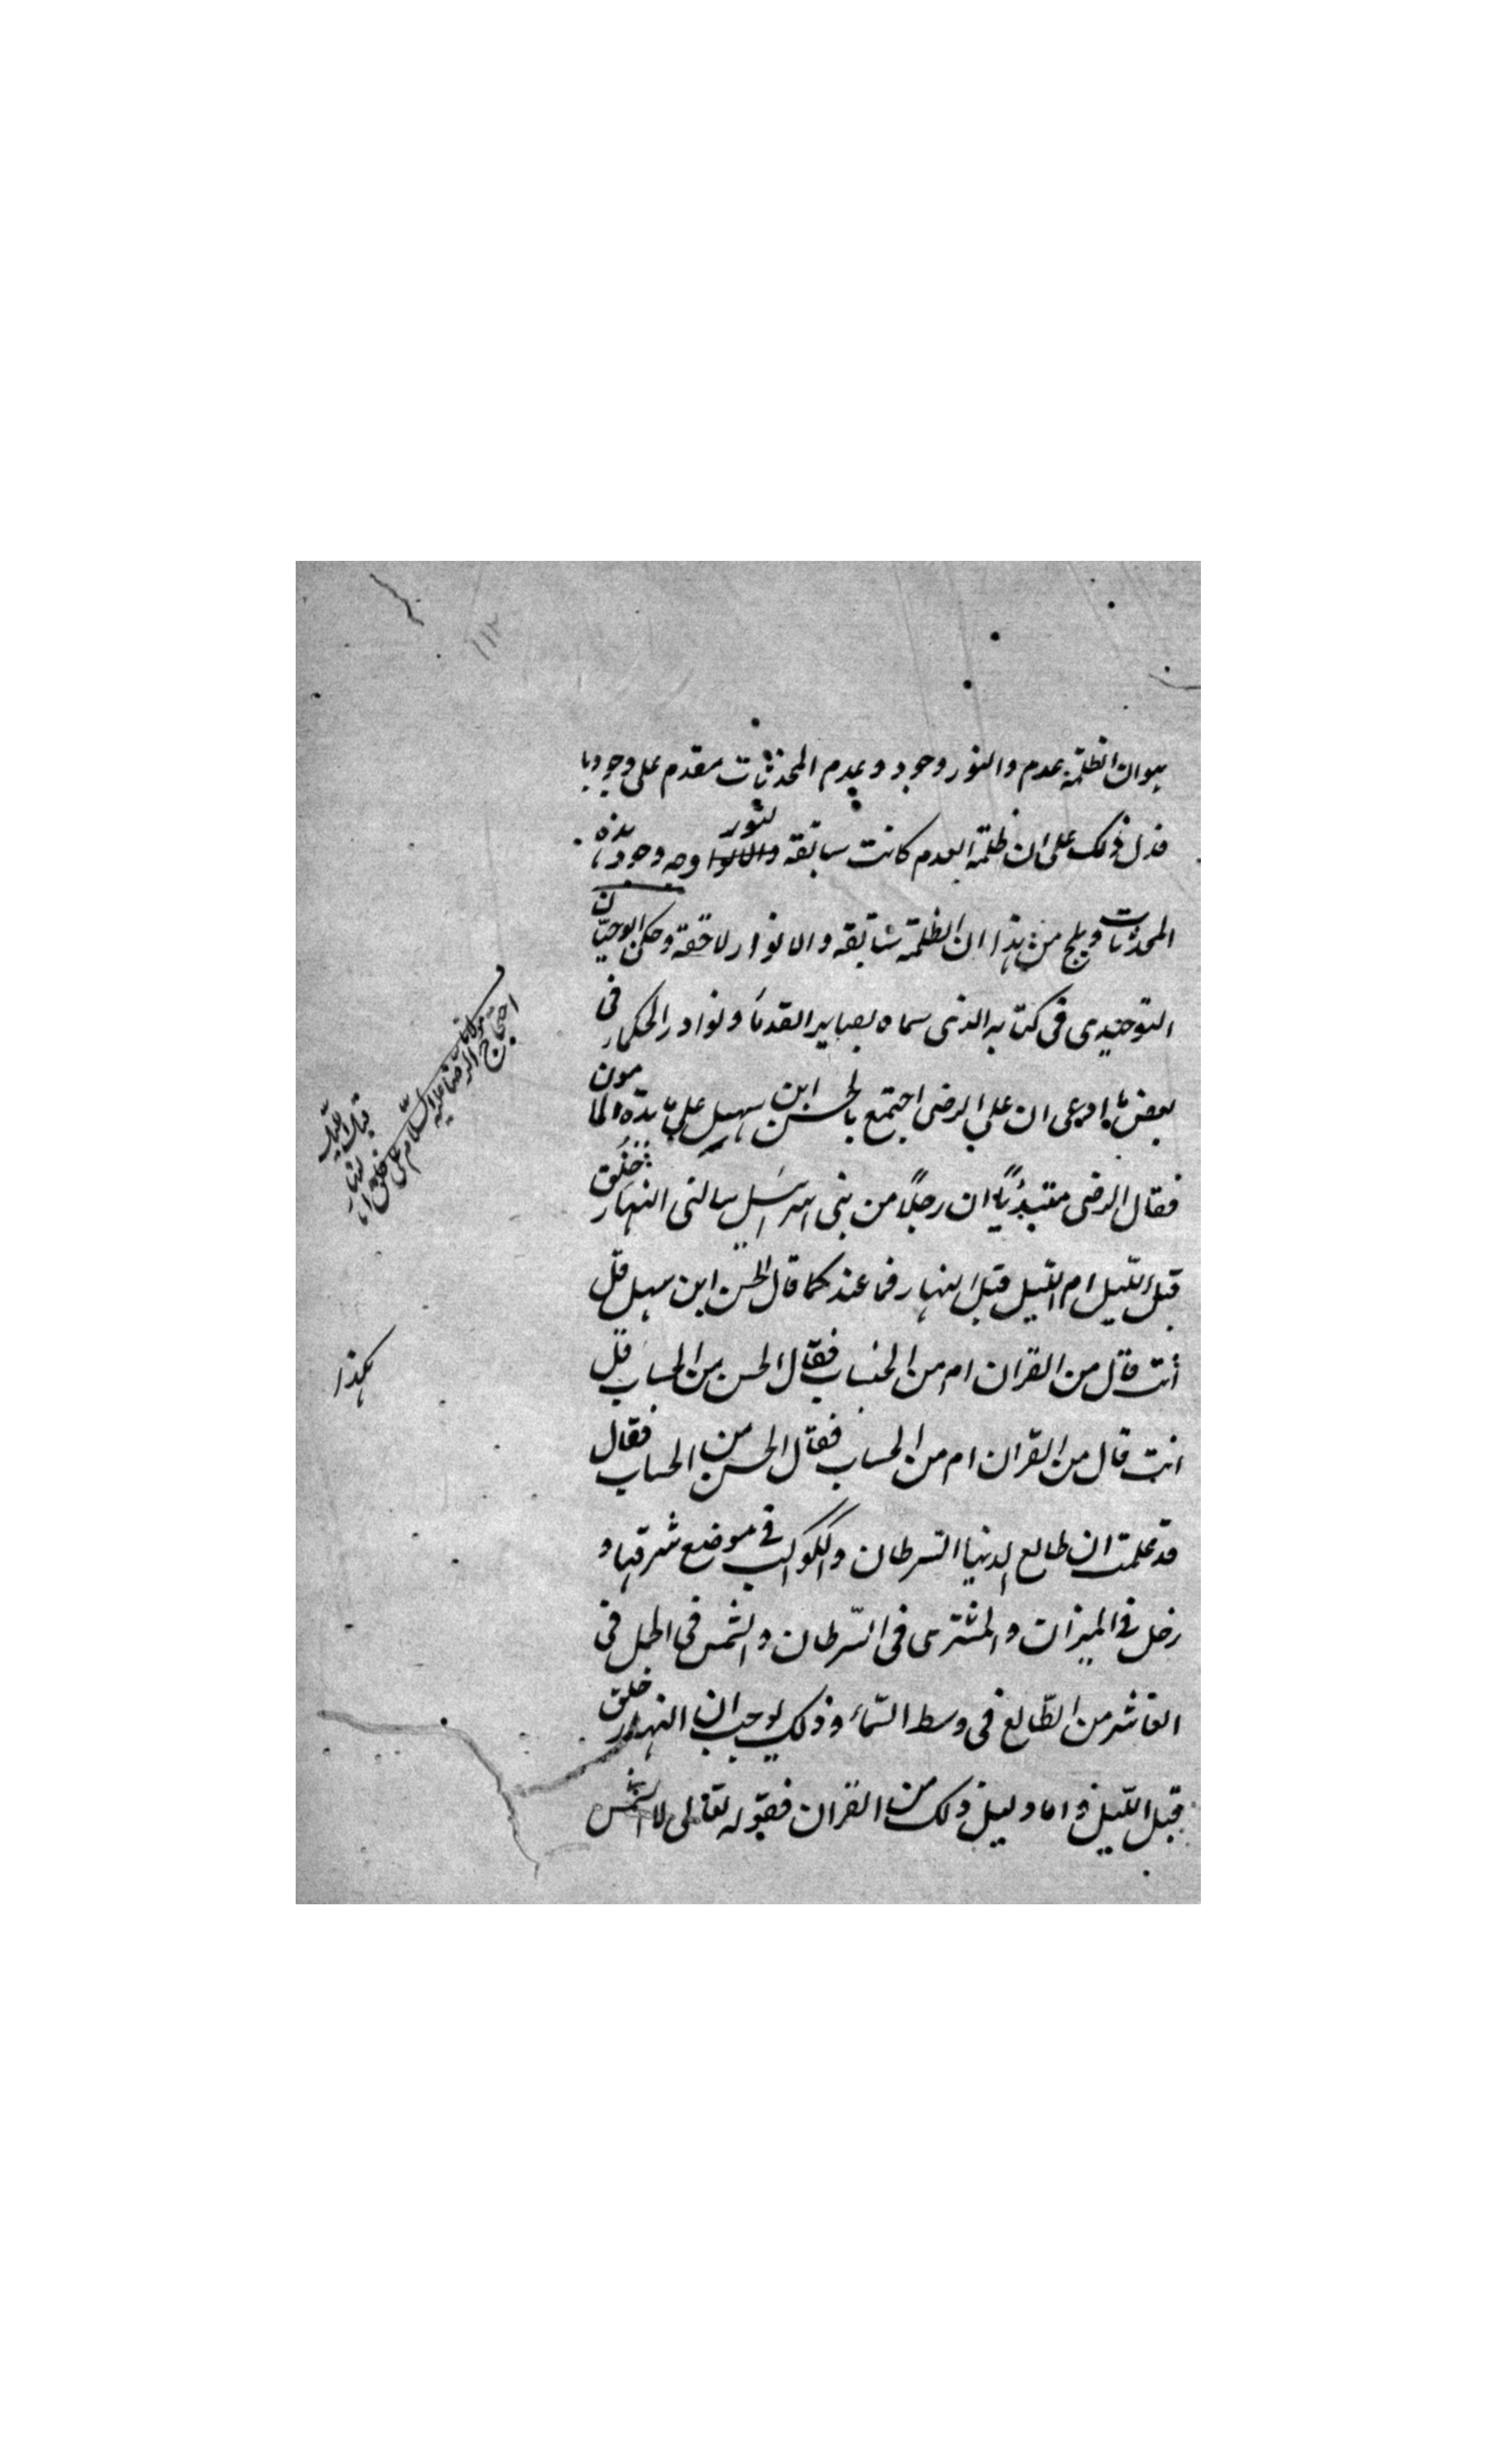 هوان الظلمة عدم والنور وجود وعدم المحدثات مقدم على وجودها
فدل ذلك على ان ظلمة العدم كانت سابقه ولنور وجود هذه
المحدثات من هذا ان الظلمة سابقه والانوار لاحقة وحكى ابوحيان
التوحيدى فى كتابه الذى سماه بصاير القدماء ونوادر الحكماء فى
بعض ما اوعى ان على الرضى اجتمع بالحسن ابن سهيل على مائدة المامون
فقال الرضى مبتدئا ان رجلا من بنى اسرائيل سالنى النهار خلق
قبل الليل ام الليل قبل النهار فما عندكما قال الحسن ابن سهل قل
أنت قال من القران ام من الحساب فقال الحسن من الحساب قل
انت قال من القران ام من الحساب فقال الحسن من الحساب فقال
قد علمت ان طالع الدنيا السرطان والكواكب فى موضع شرفها و
زحل فى الميزان والمشترى فى السرطان والشمس فى الحمل فى
العاشر من الطالع فى وسط السماء وذلك يوجب ان النهار خلق
قبل الليل واما دليل ذلك من القران فقوله تعالى لا الشمس
احتجاج مولانا
الرضا عليه السلام على خلق
النهار
قبل الليل
هكذا
١١٢